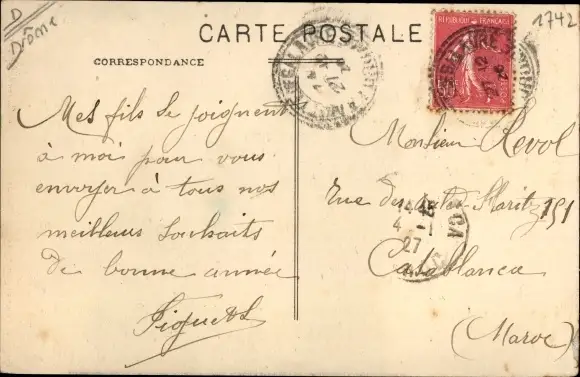 D
Drôme
1742
CARTE POSTALE
CORRESPONDANCE
REPUBLIQUE FRANÇAISE
50
Mes fils se joignent
à moi pour vous
envoyer à tous nos
meilleurs souhaits
de bonne année
Monsieur Revol
Rue du Moritz 151
Casablanca
(Maroc)
4 - 1
27